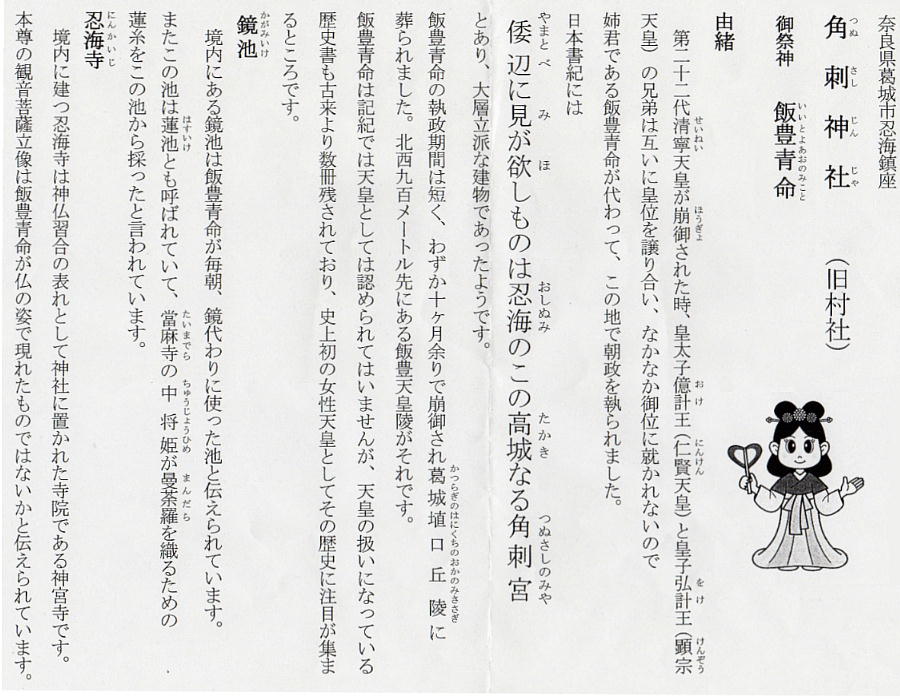 奈良県葛城市忍海鎮座
角刺神社 （旧村社）
つぬ さし じん じゃ
御祭神 飯豊青命
いいとよあおのみこと
由緒
第二十二代清寧天皇が崩御された時、皇太子億計王（仁賢天皇）と皇子弘計王（顕宗
せいねい ほうぎょ おけ にんけん をけ けんぞう
天皇）の兄弟は互いに皇位を譲り合い、なかなか御位に就かれないので
姉君である飯豊青命が代わって、この地で朝政を執られました。
日本書紀には
倭辺に見が欲しものは忍海のこの高城なる角刺宮
やまと べ み ほ おしぬみ たかき つぬさしのみや
とあり、大層立派な建物であったようです。
飯豊青命の執政期間は短く、わずか十ヶ月余りで崩御され葛城埴口丘陵に
かつらぎのはにくちのおかのみささぎ
葬られました。北西九百メートル先にある飯豊天皇陵がそれです。
飯豊青命は記紀では天皇としては認められてはいませんが、天皇の扱いになっている
歴史書も古来より数冊残されており、史上初の女性天皇としてその歴史に注目が集ま
るところです。
鏡池
かがみいけ
境内にある鏡池は飯豊青命が毎朝、鏡代わりに使った池と伝えられています。
またこの池は蓮池とも呼ばれていて、當麻寺の中将姫が曼荼羅を織るための
はすいけ たいまでら ちゅうじょうひめ まんだら
蓮糸をこの池から採ったと言われています。
忍海寺
にんかいじ
境内に建つ忍海寺は神仏習合の表れとして神社に置かれた寺院である神宮寺です。
本尊の観音菩薩立像は飯豊青命が仏の姿で現れたものではないかと伝えられています。